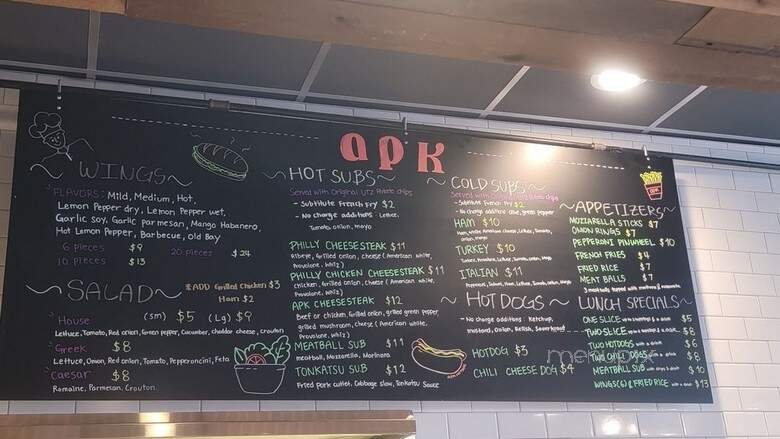 APK
WINGS
FLAVORS: Mild, Medium, Hot,
Lemon Pepper dry, Lemon Pepper wet,
Garlic soy, Garlic parmesan, Mango Habanero,
Hot Lemon Pepper, Barbecue, Old Bay
6 pieces $9 20 pieces $24
10 pieces $13
SALAD
ADD Grilled Chicken $3
Ham $2
House (sm) $5 (Lg) $9
Lettuce, Tomato, Red onion, Green pepper, Cucumber, cheddar cheese, crouton
Greek $8
Lettuce, Onion, Red onion, Tomato, Pepperoncini, Feta
Caesar $8
Romaine, Parmesan, Crouton
HOT SUBS
Served with Original Utz Potato chips
- Subtitute French Fry $2
- No charge additions: Lettuce,
Tomato, onion, mayo
PHILLY CHEESESTEAK $11
Ribeye, Grilled onion, cheese (American white,
Provolone, Whiz)
PHILLY CHICKEN CHEESESTEAK $11
chicken, Grilled onion, cheese (American white,
Provolone, Whiz)
APK CHEESESTEAK $12
Beef or chicken, Grilled onion, grilled green pepper,
grilled mushroom, cheese (American white,
Provolone, Whiz)
MEATBALL SUB $11
meatball, Mozzarella, Marinara
TONKATSU SUB $12
Fried pork cutlet, Cabbage slaw, Tonkatsu Sauce
COLD SUBS
Served with Original Utz Potato chips
- Subtitute French Fry $2
- No charge additions: olive, green pepper
HAM $10
Ham, white American cheese, Lettuce, Tomato,
onion, mayo
TURKEY $10
Turkey, Provolone, Lettuce, Tomato, onion, Mayo
ITALIAN $11
Ham, Lettuce, Tomato, onion, Mayo
HOT DOGS
- No charge additions: Ketchup,
mustard, Onion, Relish, Sauerkraut
HOTDOG $3
CHILI CHEESE DOG $4
APPETIZERS
MOZZARELLA STICKS $7
ONION RINGS $7
PEPPERONI PINWHEEL $10
FRENCH FRIES $4
FRIED RICE $7
MEAT BALLS $7
3 meatballs topped with
LUNCH SPECIALS
ONE SLICE $5
TWO SLICE $8
TWO HOTDOGS $6
TWO CHILI DOGS $8
MEATBALL SUB $10
WINGS(6) & FRIED RICE $13
menupix